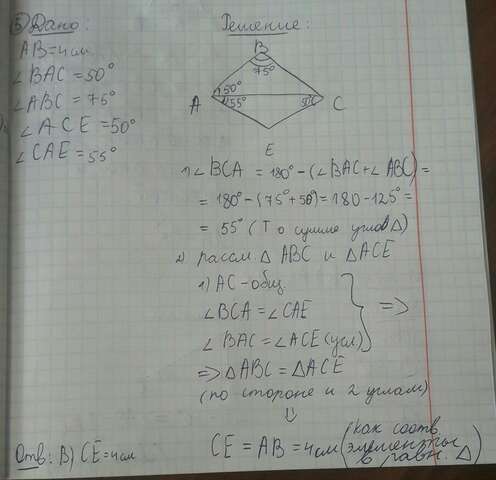 5) Дано:
AB=4см
∠BAC=50°
∠ABC=75°
∠ACE=50°
∠CAE=55°
Решение:
B
75°
A
50°
55°
50°
C
E
1) ∠BCA = 180° - (∠BAC+∠ABC) =
= 180° - (75°+50°) = 180 - 125° =
= 55° (Т о сумме углов Δ)
2) рассм Δ ABC и ΔACE
1) AC - общ
∠BCA = ∠CAE
∠BAC = ∠ACE (усл) } =>
=> ΔABC = ΔACE
(по стороне и 2 углам)
⇓
CE = AB = 4см (как соотв. элементы в равн. Δ)
Отв: В) CE=4см